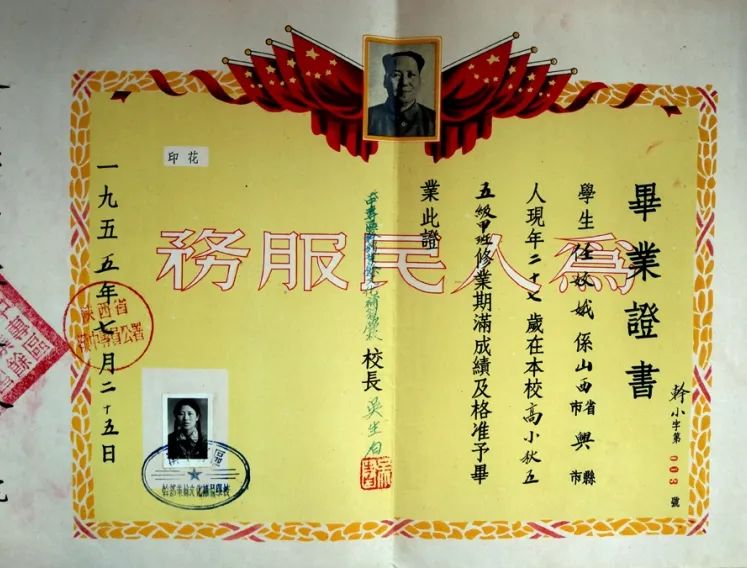 畢業證書
幹小字第003號
學生任姣娥係山西省興縣
市 市
人現年二十七歲在本校高小秋五
五級甲班修業期滿成績及格准予畢
業此證
爲人民服務
校長 吳生白
印花
一九五五年七月二十五日
陝西省
幹部業餘文化補習學校